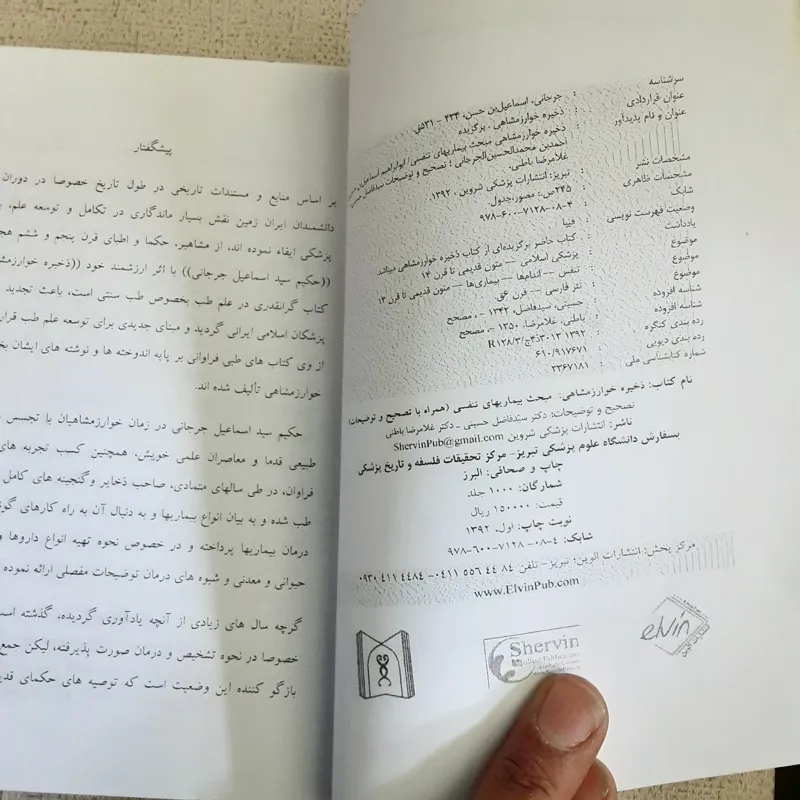 سرشناسه : جرجانی، اسماعیل‌بن حسن، ۴۳۴ - ۵۳۱ق.
عنوان قراردادی : ذخیره خوارزمشاهی . برگزیده
عنوان و نام پدیدآور : ذخیره خوارزمشاهی مبحث بیماریهای تنفسی/ ابوابراهیم اسماعیل‌بن
احمدبن محمدالحسین‌الجرجانی ؛ تصحیح و توضیحات سیدفاضل حسینی،
غلامرضا باطنی.
مشخصات نشر : تبریز: انتشارات پزشکی شروین ، ۱۳۹۲.
مشخصات ظاهری : ۲۴۵ص.: مصور،جدول
شابک : ۹۷۸-۶۰۰-۷۱۲۸-۰۸-۴
وضعیت فهرست نویسی : فیپا
یادداشت : کتاب حاضر برگزیده‌ای از کتاب ذخیره خوارزمشاهی میباشد
موضوع : پزشکی اسلامی -- متون قدیمی تا قرن ۱۴
موضوع : تنفس -- اندام‌ها -- بیماری‌ها -- متون قدیمی تا قرن ۱۴
موضوع : نثر فارسی -- قرن ۶ق.
شناسه افزوده : حسینی، سیدفاضل، ۱۳۴۲ - ، مصحح
شناسه افزوده : باطنی، غلامرضا، ۱۳۵۰ -، مصحح
رده بندی کنگره : R۱۲۸/۳/ج۴ذ۳۰۱۳ ۱۳۹۲
رده بندی دیویی : ۶۱۰/۹۱۷۶۷۱
شماره کتابشناسی ملی : ۳۳۶۷۱۸۱
نام کتاب: ذخیره خوارزمشاهی: مبحث بیماریهای تنفسی (همراه با تصحیح و توضیحات)
تصحیح و توضیحات: دکتر سیدفاضل حسینی - دکتر غلامرضا باطنی
ناشر: انتشارات پزشکی شروین ShervinPub@gmail.com
بسفارش دانشگاه علوم پزشکی تبریز- مرکز تحقیقات فلسفه و تاریخ پزشکی
چاپ و صحافی: البرز
شمارگان: ۱۰۰۰ جلد
قیمت: ۱۵۰۰۰۰ ریال
نوبت چاپ: اول، ۱۳۹۲
شابک: ۴-۰۸-۷۱۲۸-۶۰۰-۹۷۸
مرکز پخش: انتشارات الوین؛ تبریز- تلفن ۸۴ ۴۴ ۵۵۶ ۰۴۱۱- ۴۴۸۴ ۴۱۱ ۰۹۳۰
www.ElvinPub.com
elvin
Shervin
Medical Publications
پیشگفتار
بر اساس منابع و مستندات تاریخی در طول تاریخ خصوصا در دوران
دانشمندان ایران زمین نقش بسیار ماندگاری در تکامل و توسعه علم،
پزشکی ایفاء نموده اند، از مشاهیر، حکما و اطبای قرن پنجم و ششم
((حکیم سید اسماعیل جرجانی)) با اثر ارزشمند خود
کتاب گرانقدری در علم طب بخصوص طب سنتی است، باعث تجدید
پزشکان اسلامی ایرانی گردید و مبنای جدیدی برای توسعه علم طب
از وی کتاب های طبی فراوانی بر پایه اندوخته ها و نوشته های ایشان
خوارزمشاهی تألیف شده اند.
حکیم سید اسماعیل جرجانی در زمان خوارزمشاهیان با تجسس
طبیعی قدما و معاصران علمی خویش، همچنین کسب تجربه های
فراوان، در طی سالهای متمادی، صاحب ذخایر وگنجینه های کامل
طب شده و به بیان انواع بیماریها و به دنبال آن به راه کارهای
درمان بیماریها پرداخته و در خصوص نحوه تهیه انواع داروها و
حیوانی و معدنی و شیوه های درمان توضیحات مفصلی ارائه نموده
گرچه سال های زیادی از آنچه یادآوری گردیده، گذشته
خصوصا در نحوه تشخیص و درمان صورت پذیرفته، لیکن جمع
بازگو کننده این وضعیت است که توصیه های حکمای